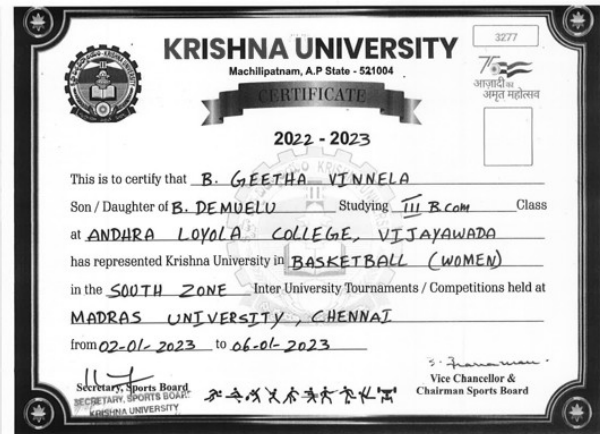 3277
KRISHNA UNIVERSITY
Machilipatnam, A.P State - 521004
CERTIFICATE
आज़ादी का
अमृत महोत्सव
2022 - 2023
This is to certify that B. GEETHA VINNELA
Son / Daughter of B. DEMUELU Studying III B.Com Class
at ANDHRA LOYOLA COLLEGE, VIJAYAWADA
has represented Krishna University in BASKETBALL (WOMEN)
in the SOUTH ZONE Inter University Tournaments / Competitions held at
MADRAS UNIVERSITY, CHENNAI
from 02-01-2023 to 06-01-2023
Secretary, Sports Board
SECRETARY, SPORTS BOARD
KRISHNA UNIVERSITY
Vice Chancellor &
Chairman Sports Board